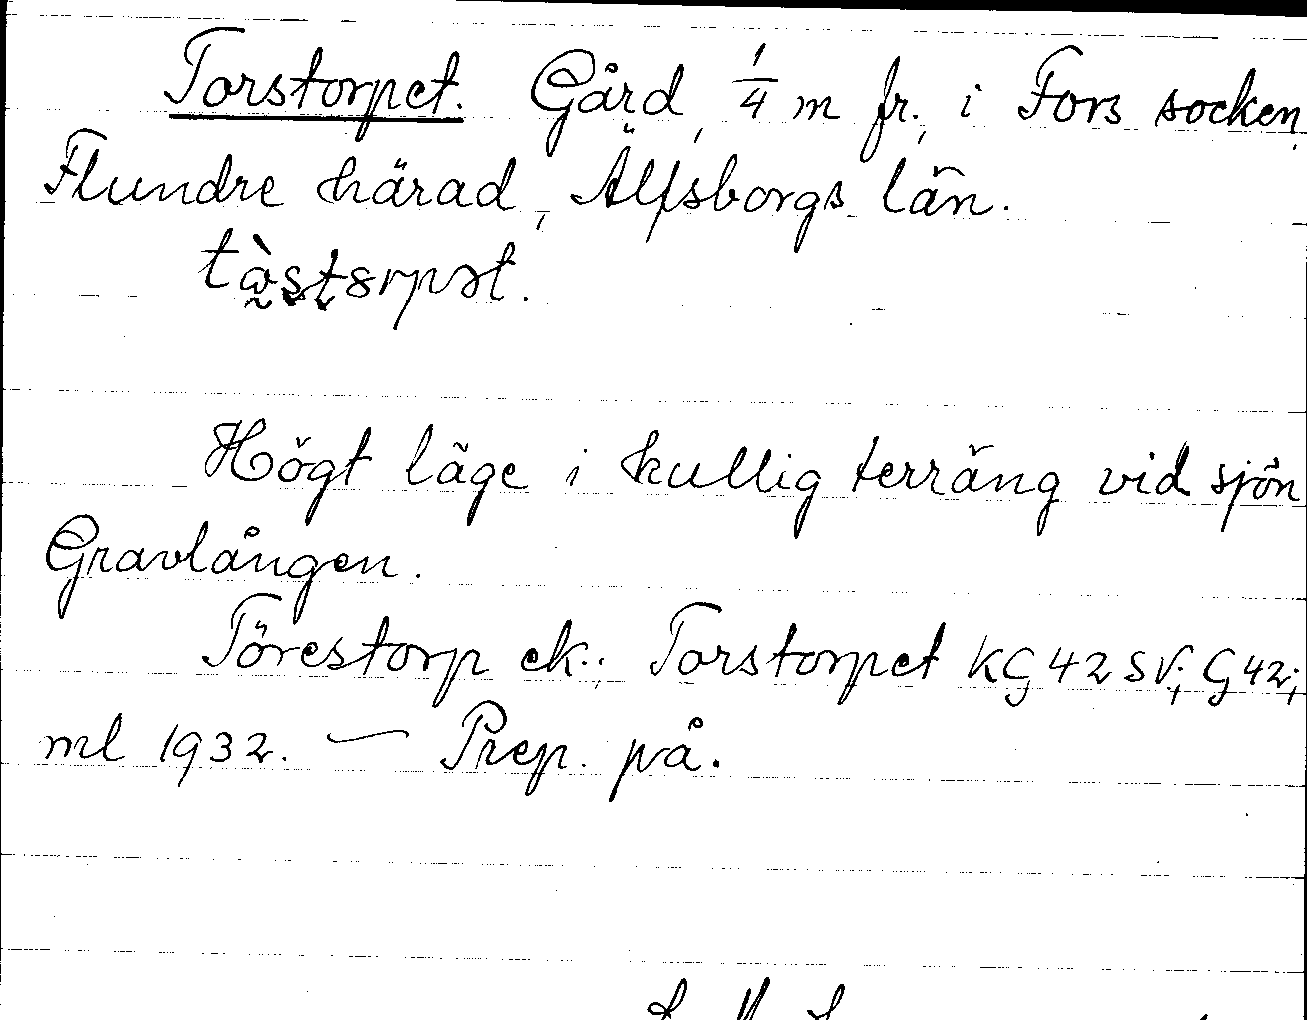 Torstorpet. Gård, 1/4 m fr., i Fors socken,
Flundre härad, Älfsborgs län.
Högt läge i kullig terräng vid sjön
Gravlången.
Törestorp ek.; Torstorpet KG 42 SV; G 42;
ml 1932. — Prep. på.